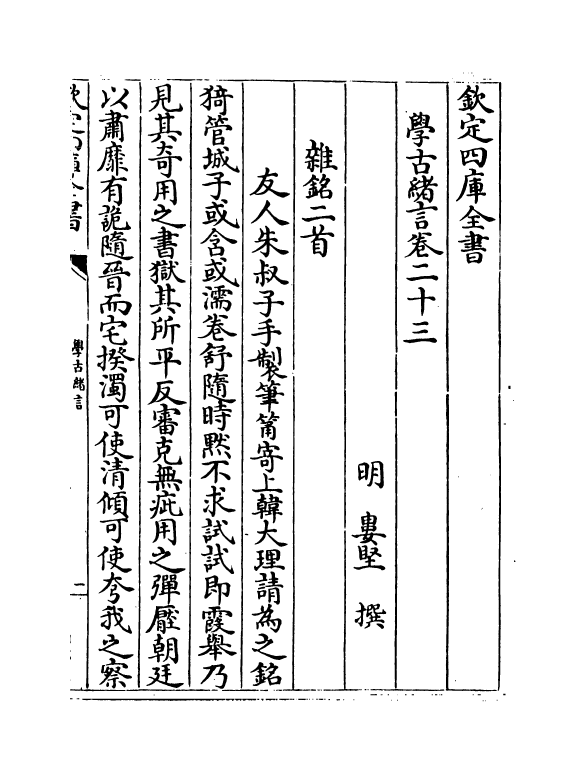 欽定四庫全書
學古緒言卷二十三
明　婁堅　撰
雜銘二首
友人朱叔子手製筆筩寄上韓大理請為之銘
猗管城子或含或濡卷舒隨時黙不求試試即霞舉乃
見其奇用之書獄其所平反審克無疵用之彈壓朝廷
以肅靡有詭隨晉而宅揆濁可使清傾可使夸我之察
欽定四庫全書
學古緒言